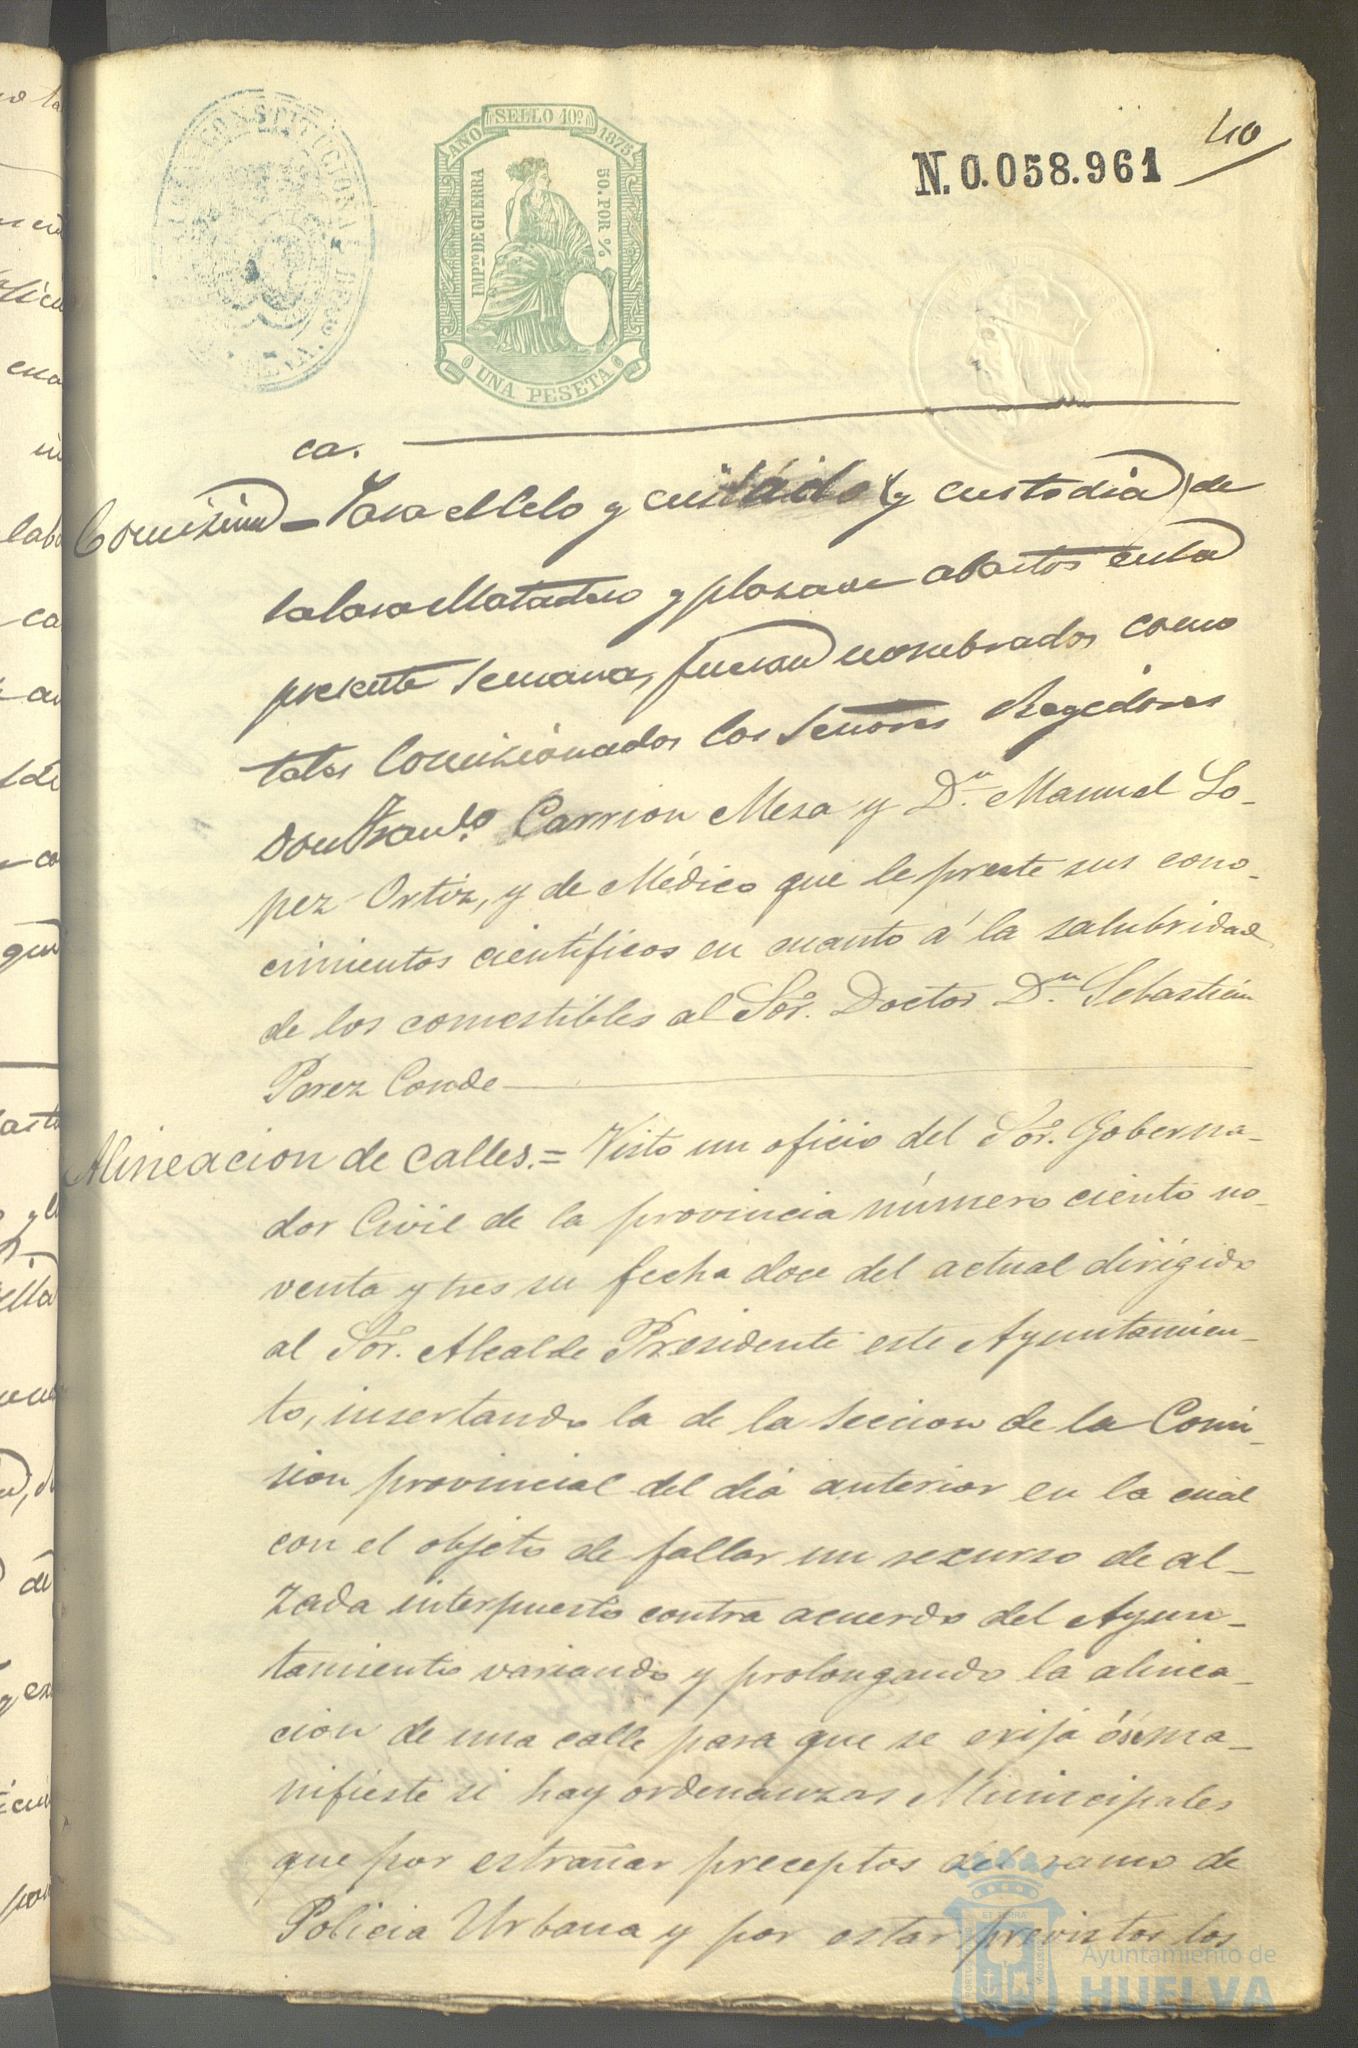 40
N. 0.058.961
AÑO SELLO 10º 1875
IMPTO DE GUERRA
50. POR %
UNA PESETA
ca.
Comision = Para el celo y cuidado (y custodia) de
la casa Matadero y plaza de abastos en la
presente semana, fueron nombrados como
tales Comisionados los Señores Regidores
Don Franco. Carrion Mesa y Dn. Manuel Lo-
pez Ortiz, y de Médico que le preste sus cono-
cimientos científicos en cuanto á la salubridad
de los comestibles al Sor. Doctor Dn. Sebastian
Perez Conde
Alineacion de calles. = Visto un oficio del Sor. Goberna-
dor Civil de la provincia número ciento no-
venta y tres su fecha doce del actual dirigido
al Sor. Alcalde Presidente este Ayuntamien-
to, insertando la de la seccion de la Comi-
sion provincial del dia anterior en la cual
con el objeto de fallar un recurso de al-
zada interpuesto contra acuerdo del Ayun-
tamiento variando y prolongando la alinea-
cion de una calle para que se exija ó se ma-
nifieste si hay ordenanzas Municipales
que por estrañar preceptos del ramo de
Policia Urbana y por estar previstos los
Ayuntamiento de
HUELVA